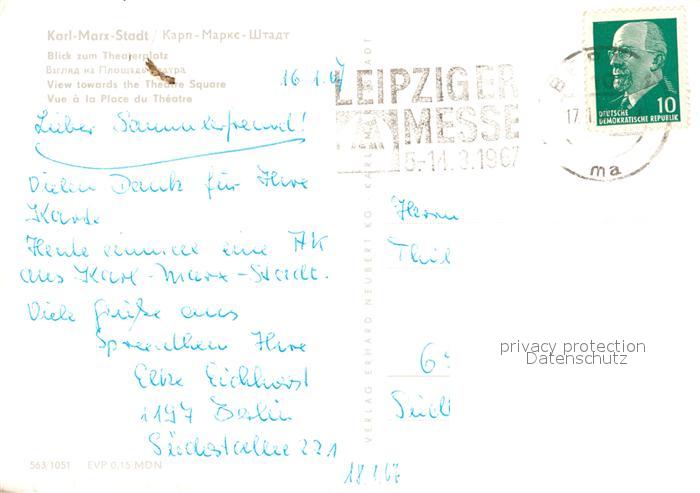 Karl-Marx-Stadt / Карл-Маркс-Штадт
Blick zum Theaterplatz
Взгляд на Площадь театра
View towards the Theatre Square
Vue à la Place du Théatre
16 1. 67
LEIPZIGER
MESSE
5.-14.3.1967
BERLIN
17.1
ma
10
DEUTSCHE
DEMOKRATISCHE REPUBLIK
Lieber Sammlerfreund!
Vielen Dank für Ihre
Karte.
Heute einmal eine AK
aus Karl-Marx-Stadt.
Viele Grüße aus
Ihre
Elke Eichhorst
1197 Berlin
221
Herrn
Thil
6
privacy protection
Datenschutz
VERLAG ERHARD NEUBERT KG · KARL-MARX-STADT
563/1051 EVP 0,15 MDN
18.1.67